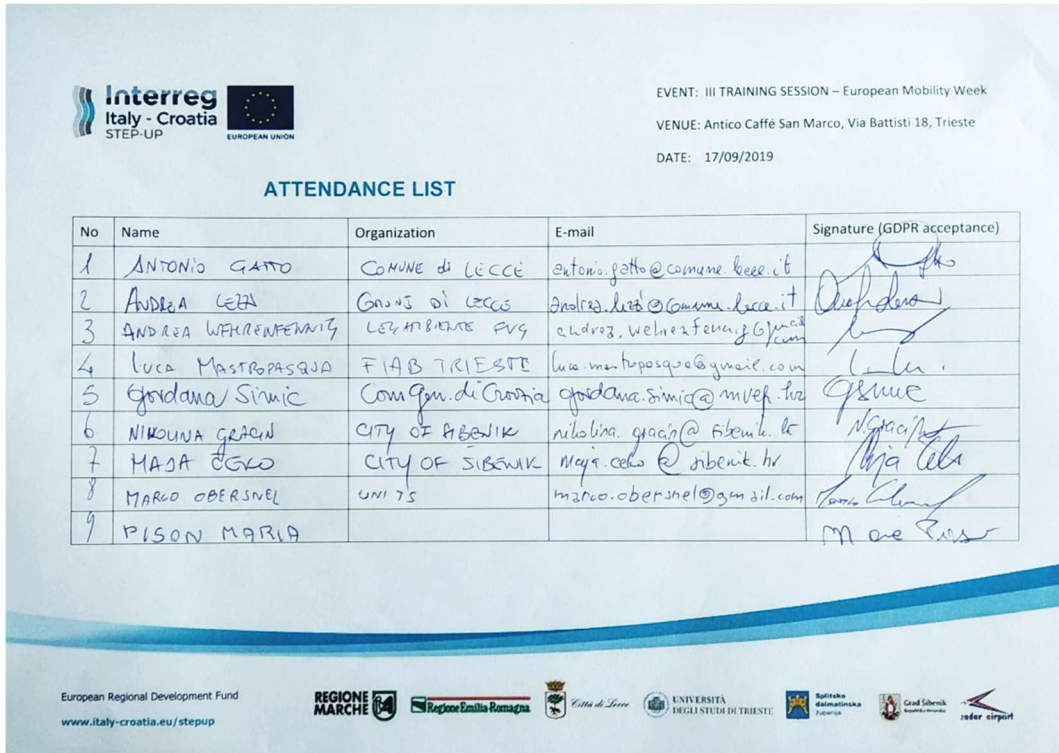 Interreg
Italy - Croatia
STEP-UP
EUROPEAN UNION
EVENT: III TRAINING SESSION – European Mobility Week
VENUE: Antico Caffé San Marco, Via Battisti 18, Trieste
DATE: 17/09/2019
ATTENDANCE LIST
No Name Organization E-mail Signature (GDPR acceptance)
1 ANTONIO GATTO COMUNE di LECCE antonio.gatto@comune.lecce.it
2 ANDREA DI LECCE
3 ANDREA WEHRENFENNIG LEGAMBIENTE FVG
4 LUCA MASTROPASQUA FIAB TRIESTE luca.mastropasqua@gmail.com
5 Gordana Simic Con Gen. di Croazia gordana.simic@mvep.hr
6 NIKOLINA GRACIN CITY OF SIBENIK N. Gracin
7 MAJA CEKO CITY OF SIBENIK maja.ceko@sibenik.hr
8 MARCO OBERSNEL UNITS marco.obersnel@gmail.com
9 PISON MARIA
European Regional Development Fund
www.italy-croatia.eu/stepup
REGIONE
MARCHE
Regione Emilia-Romagna
Città di Lecce
UNIVERSITÀ
DEGLI STUDI DI TRIESTE
Splitsko
dalmatinska
županija
Grad Šibenik
Republika Hrvatska
zadar airport